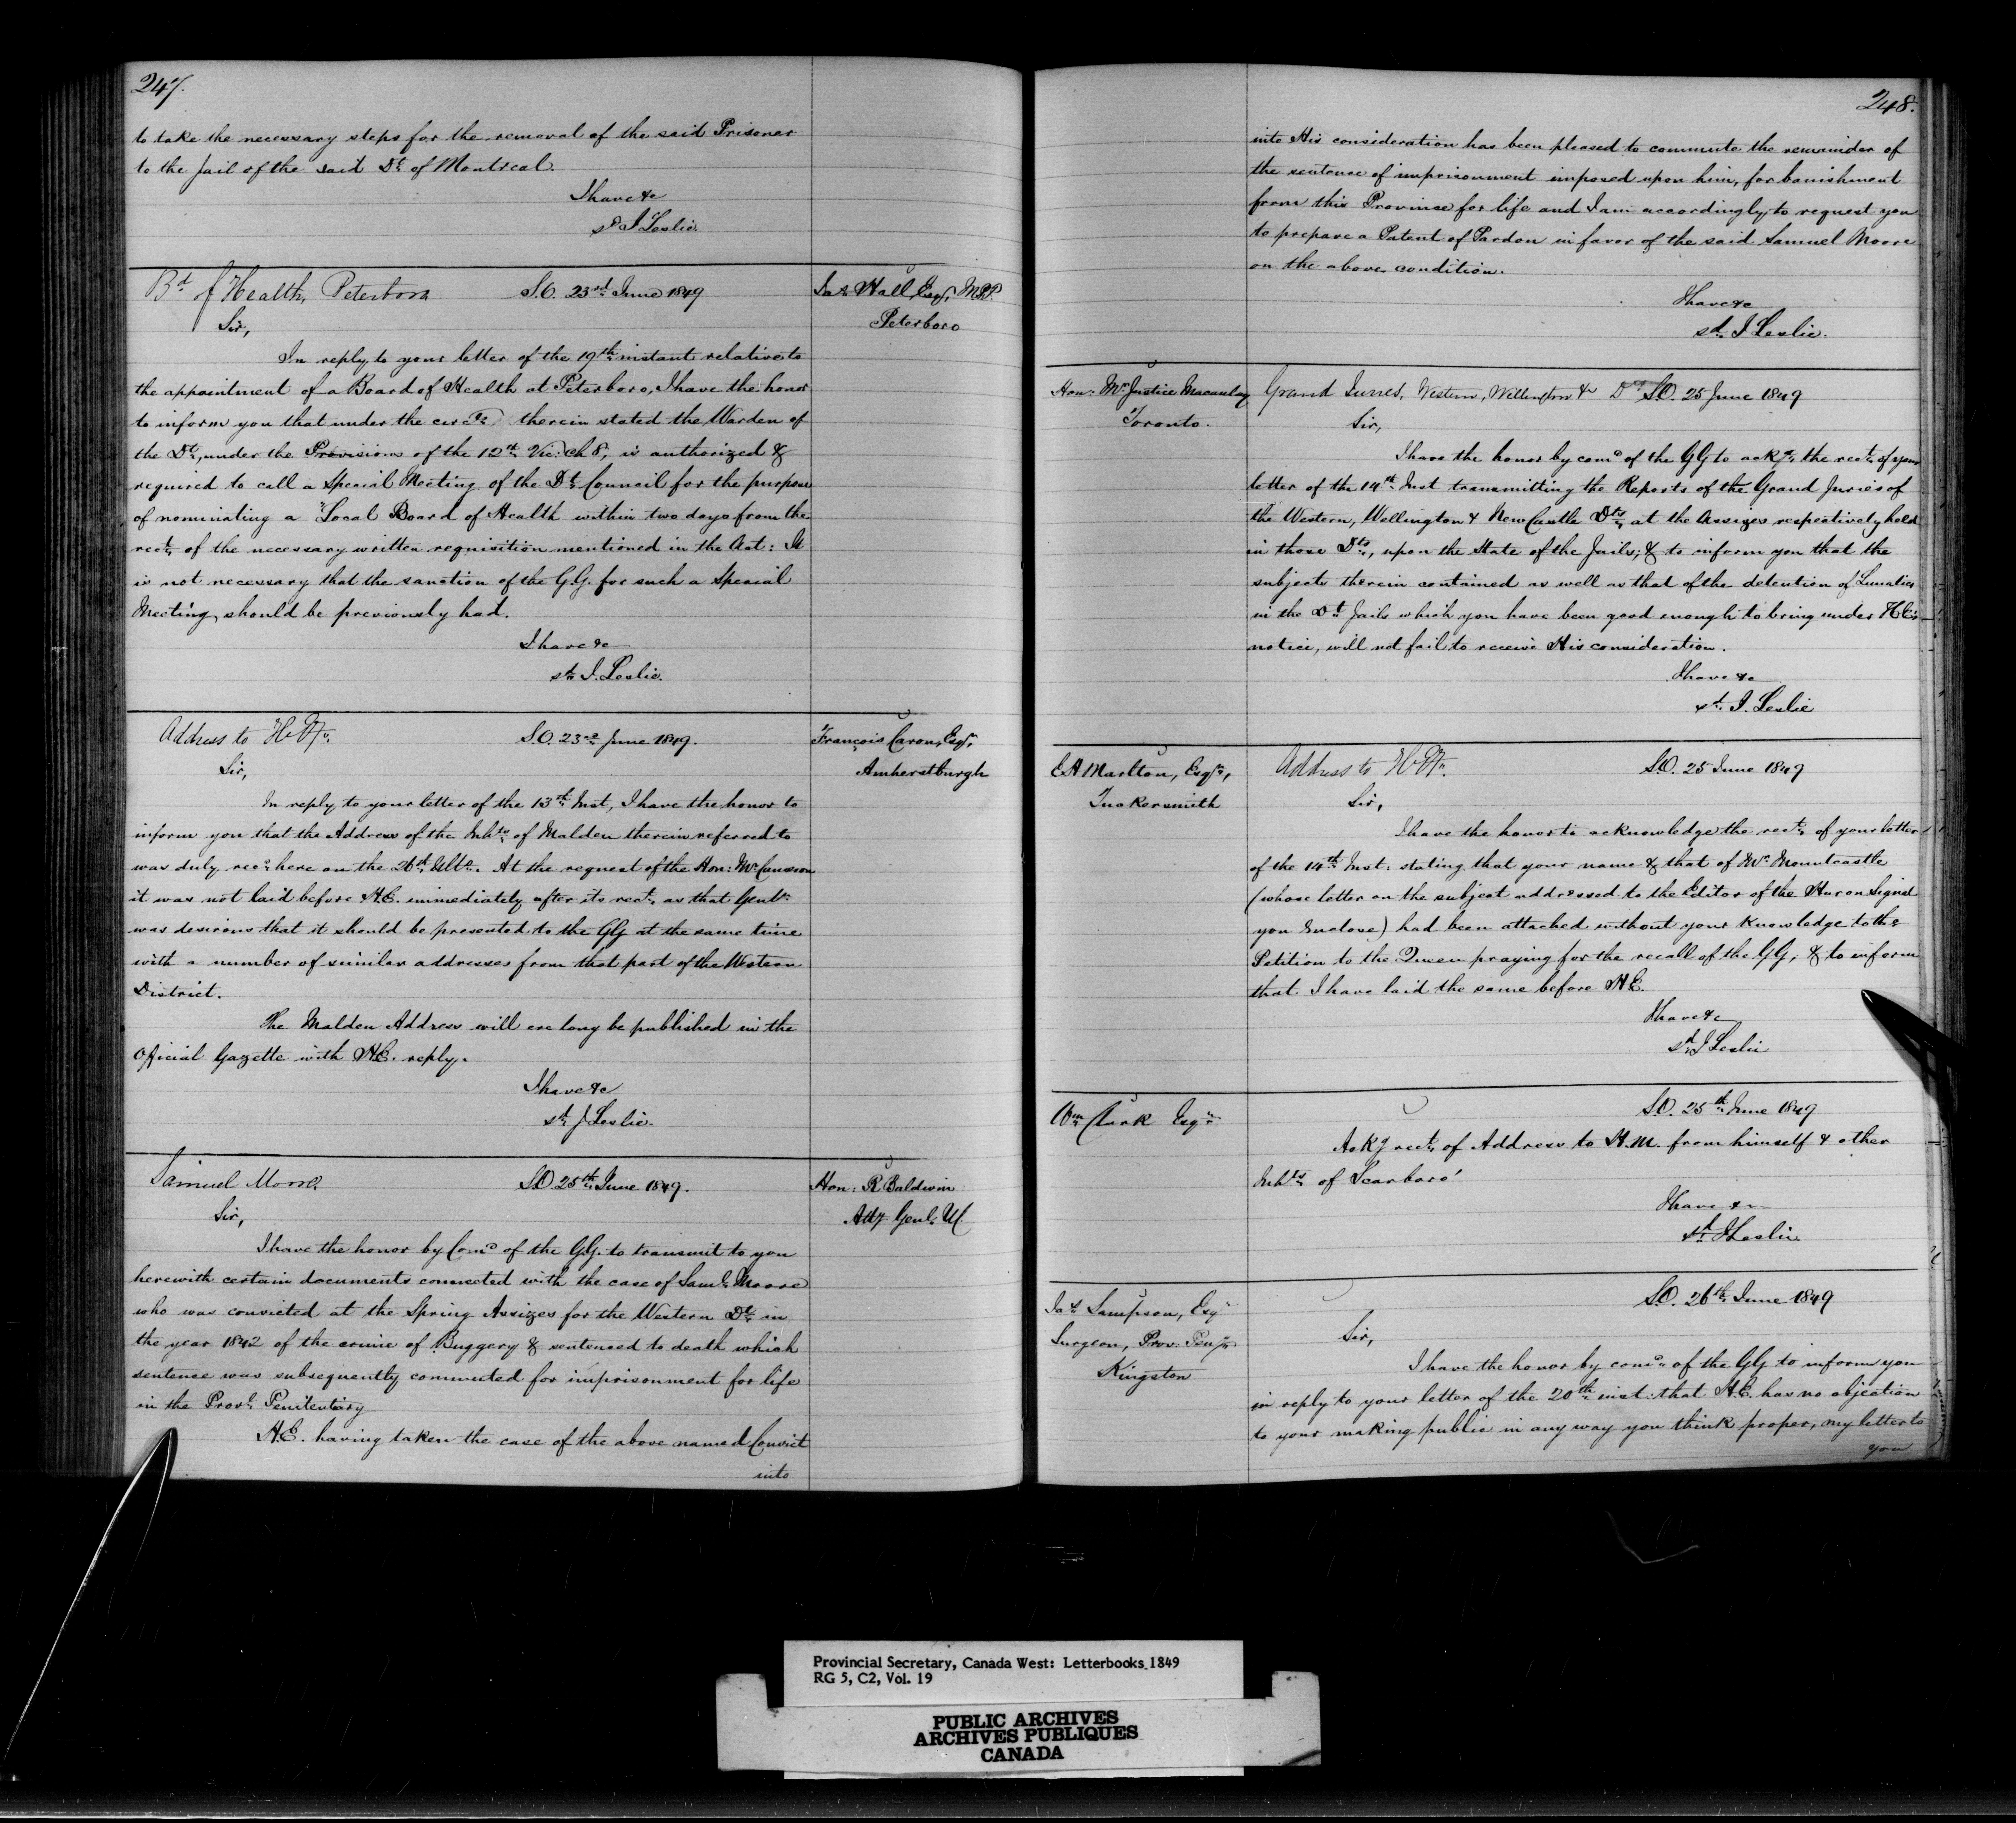 247.
to take the necessary steps for the removal of the said Prisoner
to the Jail of the said Dt of Montreal.
I have &c
sd J Leslie.
Bd of Health, Peterboro S.O. 23rd June 1849
Jas Hall, Esqr, M.P.P.
Peterboro
Sir,
In reply to your letter of the 19th instant relative to
the appointment of a Board of Health at Peterboro, I have the honor
to inform you that under the therein stated the Warden of
the Dt, under the Provisions of the 12th Vic: ch 8, is authorized &
required to call a Special Meeting of the Dt Council for the purpose
of nominating a Local Board of Health within two days from the
rect of the necessary written requisition mentioned in the Act: It
is not necessary that the sanction of the G.G. for such a Special
Meeting should be previously had.
I have &c
sd J. Leslie.
Address to H.M. S.O. 23rd June 1849.
François Caron, Esqr,
Amherstburgh
Sir,
In reply to your letter of the 13th Inst, I have the honor to
inform you that the Address of the Inhts of Malden therein referred to
was duly recd here on the 26th Ulto. At the request of the Hon: Mr Cameron
it was not laid before H.E. immediately after its rect, as that Gentn
was desirous that it should be presented to the GG at the same time
with a number of similar addresses from that part of the Western
District.
The Malden Address will ere long be published in the
Official Gazette with H.E. reply.
I have &c
sd J Leslie.
Samuel Moore. S.O. 25th June 1849.
Hon: R Baldwin
Atty Genl. UC
Sir,
I have the honor by Comd of the G.G. to transmit to you
herewith certain documents connected with the case of Saml Moore
who was convicted at the Spring Assizes for the Western Dt in
the year 1842 of the crime of Buggery & sentenced to death which
sentence was subsequently commuted for imprisonment for life
in the Provl Penitentiary
H.E. having taken the case of the above named Convict
into
248.
into His consideration has been pleased to commute the remainder of
the sentence of imprisonment imposed upon him, for banishment
from this Province for life and I am accordingly to request you
to prepare a Patent of Pardon in favor of the said Samuel Moore
on the above condition.
I have &c
sd J Leslie.
Hon: Mr Justice Macaulay
Toronto.
Grand Juries, Western, Wellington & Dts S.O. 25 June 1849
Sir,
I have the honor by comd of the GG to ackge the rect of your
letter of the 14th Inst transmitting the Reports of the Grand Juries of
the Western, Wellington & New Castle Dts at the Assizes respectively held
in those Dts, upon the State of the Jails; & to inform you that the
subjects therein contained as well as that of the detention of Lunatics
in the Dt Jails which you have been good enough to bring under H E's
notice, will not fail to receive His consideration.
I have &c
sd J. Leslie
E A Marlton, Esqr,
Tuckersmith
Address to H.M. S.O. 25 June 1849
Sir,
I have the honor to acknowledge the rect of your letter
of the 14th Inst: stating that your name & that of Mr Mountcastle
(whose letter on the subject addressed to the Editor of the Huron Signal
you Enclose) had been attached without your knowledge to the
Petition to the Queen praying for the recall of the GG, & to inform
that I have laid the same before H.E.
I have &c
sd J Leslie
Wm Clark Esqr
S.O. 25th June 1849
Ackg rect of Address to H.M. from himself & other
Inhts of Scarboro'
I have &c
sd J Leslie
Jas Sampson, Esqr
Surgeon, Prov: Peny
Kingston
S.O. 26th June 1849
Sir,
I have the honor by comd of the GG to inform you
in reply to your letter of the 20th inst: that H.E. has no objection
to your making public in any way you think proper, my letter to
you
Provincial Secretary, Canada West: Letterbooks 1849
RG 5, C2, Vol. 19
PUBLIC ARCHIVES
ARCHIVES PUBLIQUES
CANADA